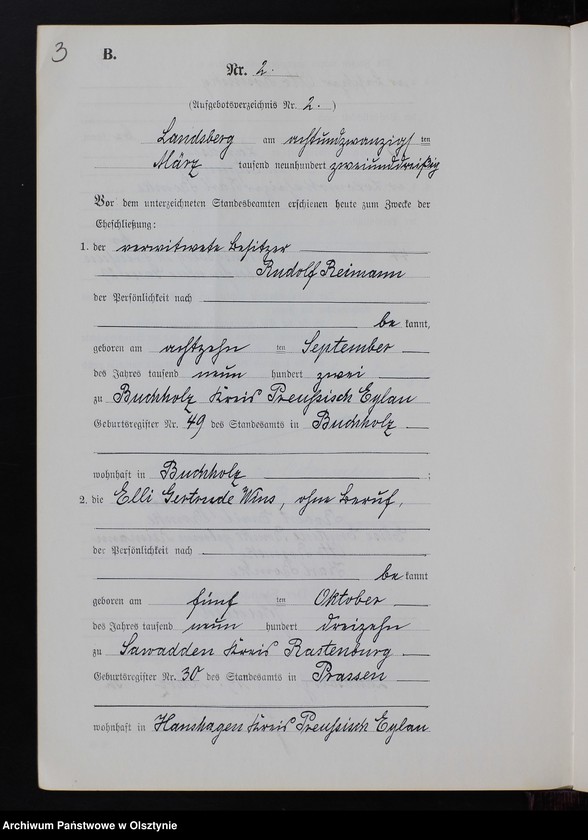 3
B.
Nr. 2.
(Aufgebotsverzeichnis Nr. 2.)
Landsberg am achtundzwanzigs ten
März tausend neunhundert zweiunddreißig
Vor dem unterzeichneten Standesbeamten erschienen heute zum Zwecke der
Eheschließung:
1. der verwitwete Besitzer
Rudolf Reimann
der Persönlichkeit nach
be kannt,
geboren am achtzehn ten September
des Jahres tausend neun hundert zwei
zu Buchholz Kreis Preußisch Eylau
Geburtsregister Nr. 49 des Standesamts in Buchholz
wohnhaft in Buchholz ;
2. die Elli Gertrude Wins, ohne Beruf,
der Persönlichkeit nach
be kannt
geboren am fünf ten Oktober
des Jahres tausend neun hundert dreizehn
zu Sawadden Kreis Rastenburg
Geburtsregister Nr. 30 des Standesamts in Prassen
wohnhaft in Hanshagen Kreis Preußisch Eylau
Archiwum Państwowe w Olsztynie